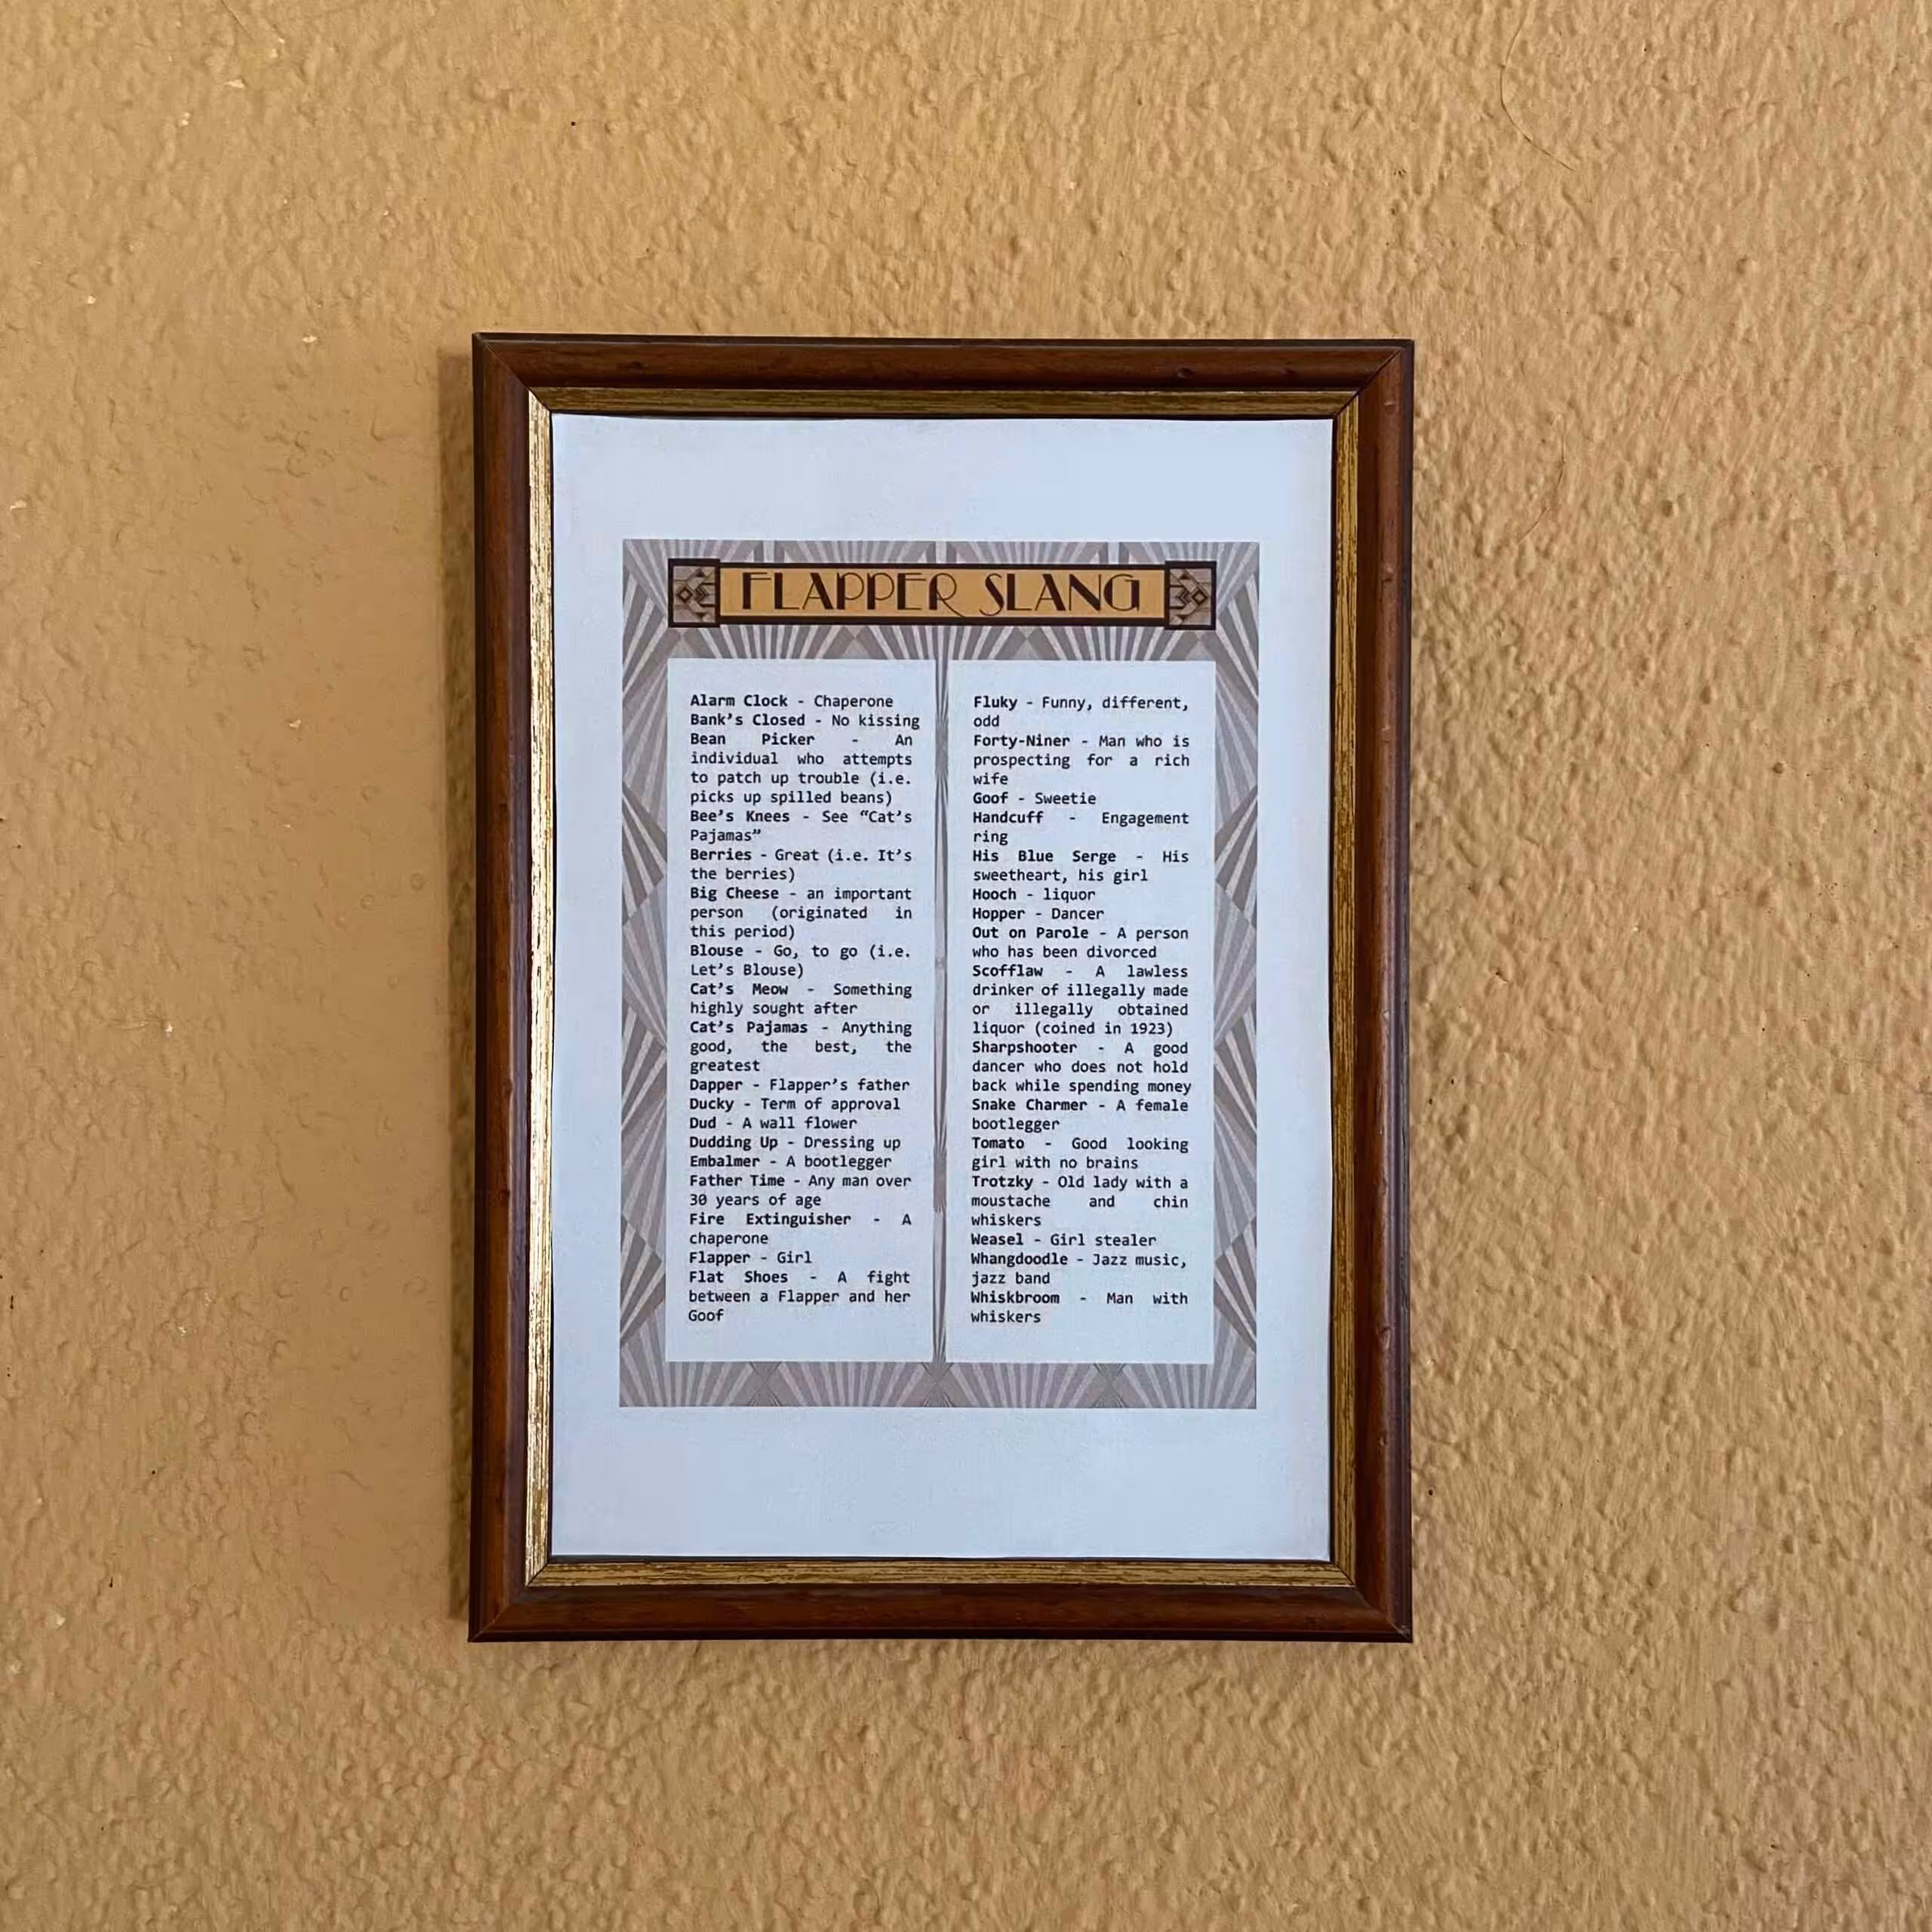 FLAPPER SLANG
Alarm Clock - Chaperone
Bank’s Closed - No kissing
Bean Picker - An
individual who attempts
to patch up trouble (i.e.
picks up spilled beans)
Bee’s Knees - See “Cat’s
Pajamas”
Berries - Great (i.e. It’s
the berries)
Big Cheese - an important
person (originated in
this period)
Blouse - Go, to go (i.e.
Let’s Blouse)
Cat’s Meow - Something
highly sought after
Cat’s Pajamas - Anything
good, the best, the
greatest
Dapper - Flapper’s father
Ducky - Term of approval
Dud - A wall flower
Dudding Up - Dressing up
Embalmer - A bootlegger
Father Time - Any man over
30 years of age
Fire Extinguisher - A
chaperone
Flapper - Girl
Flat Shoes - A fight
between a Flapper and her
Goof
Fluky - Funny, different,
odd
Forty-Niner - Man who is
prospecting for a rich
wife
Goof - Sweetie
Handcuff - Engagement
ring
His Blue Serge - His
sweetheart, his girl
Hooch - liquor
Hopper - Dancer
Out on Parole - A person
who has been divorced
Scofflaw - A lawless
drinker of illegally made
or illegally obtained
liquor (coined in 1923)
Sharpshooter - A good
dancer who does not hold
back while spending money
Snake Charmer - A female
bootlegger
Tomato - Good looking
girl with no brains
Trotzky - Old lady with a
moustache and chin
whiskers
Weasel - Girl stealer
Whangdoodle - Jazz music,
jazz band
Whiskbroom - Man with
whiskers